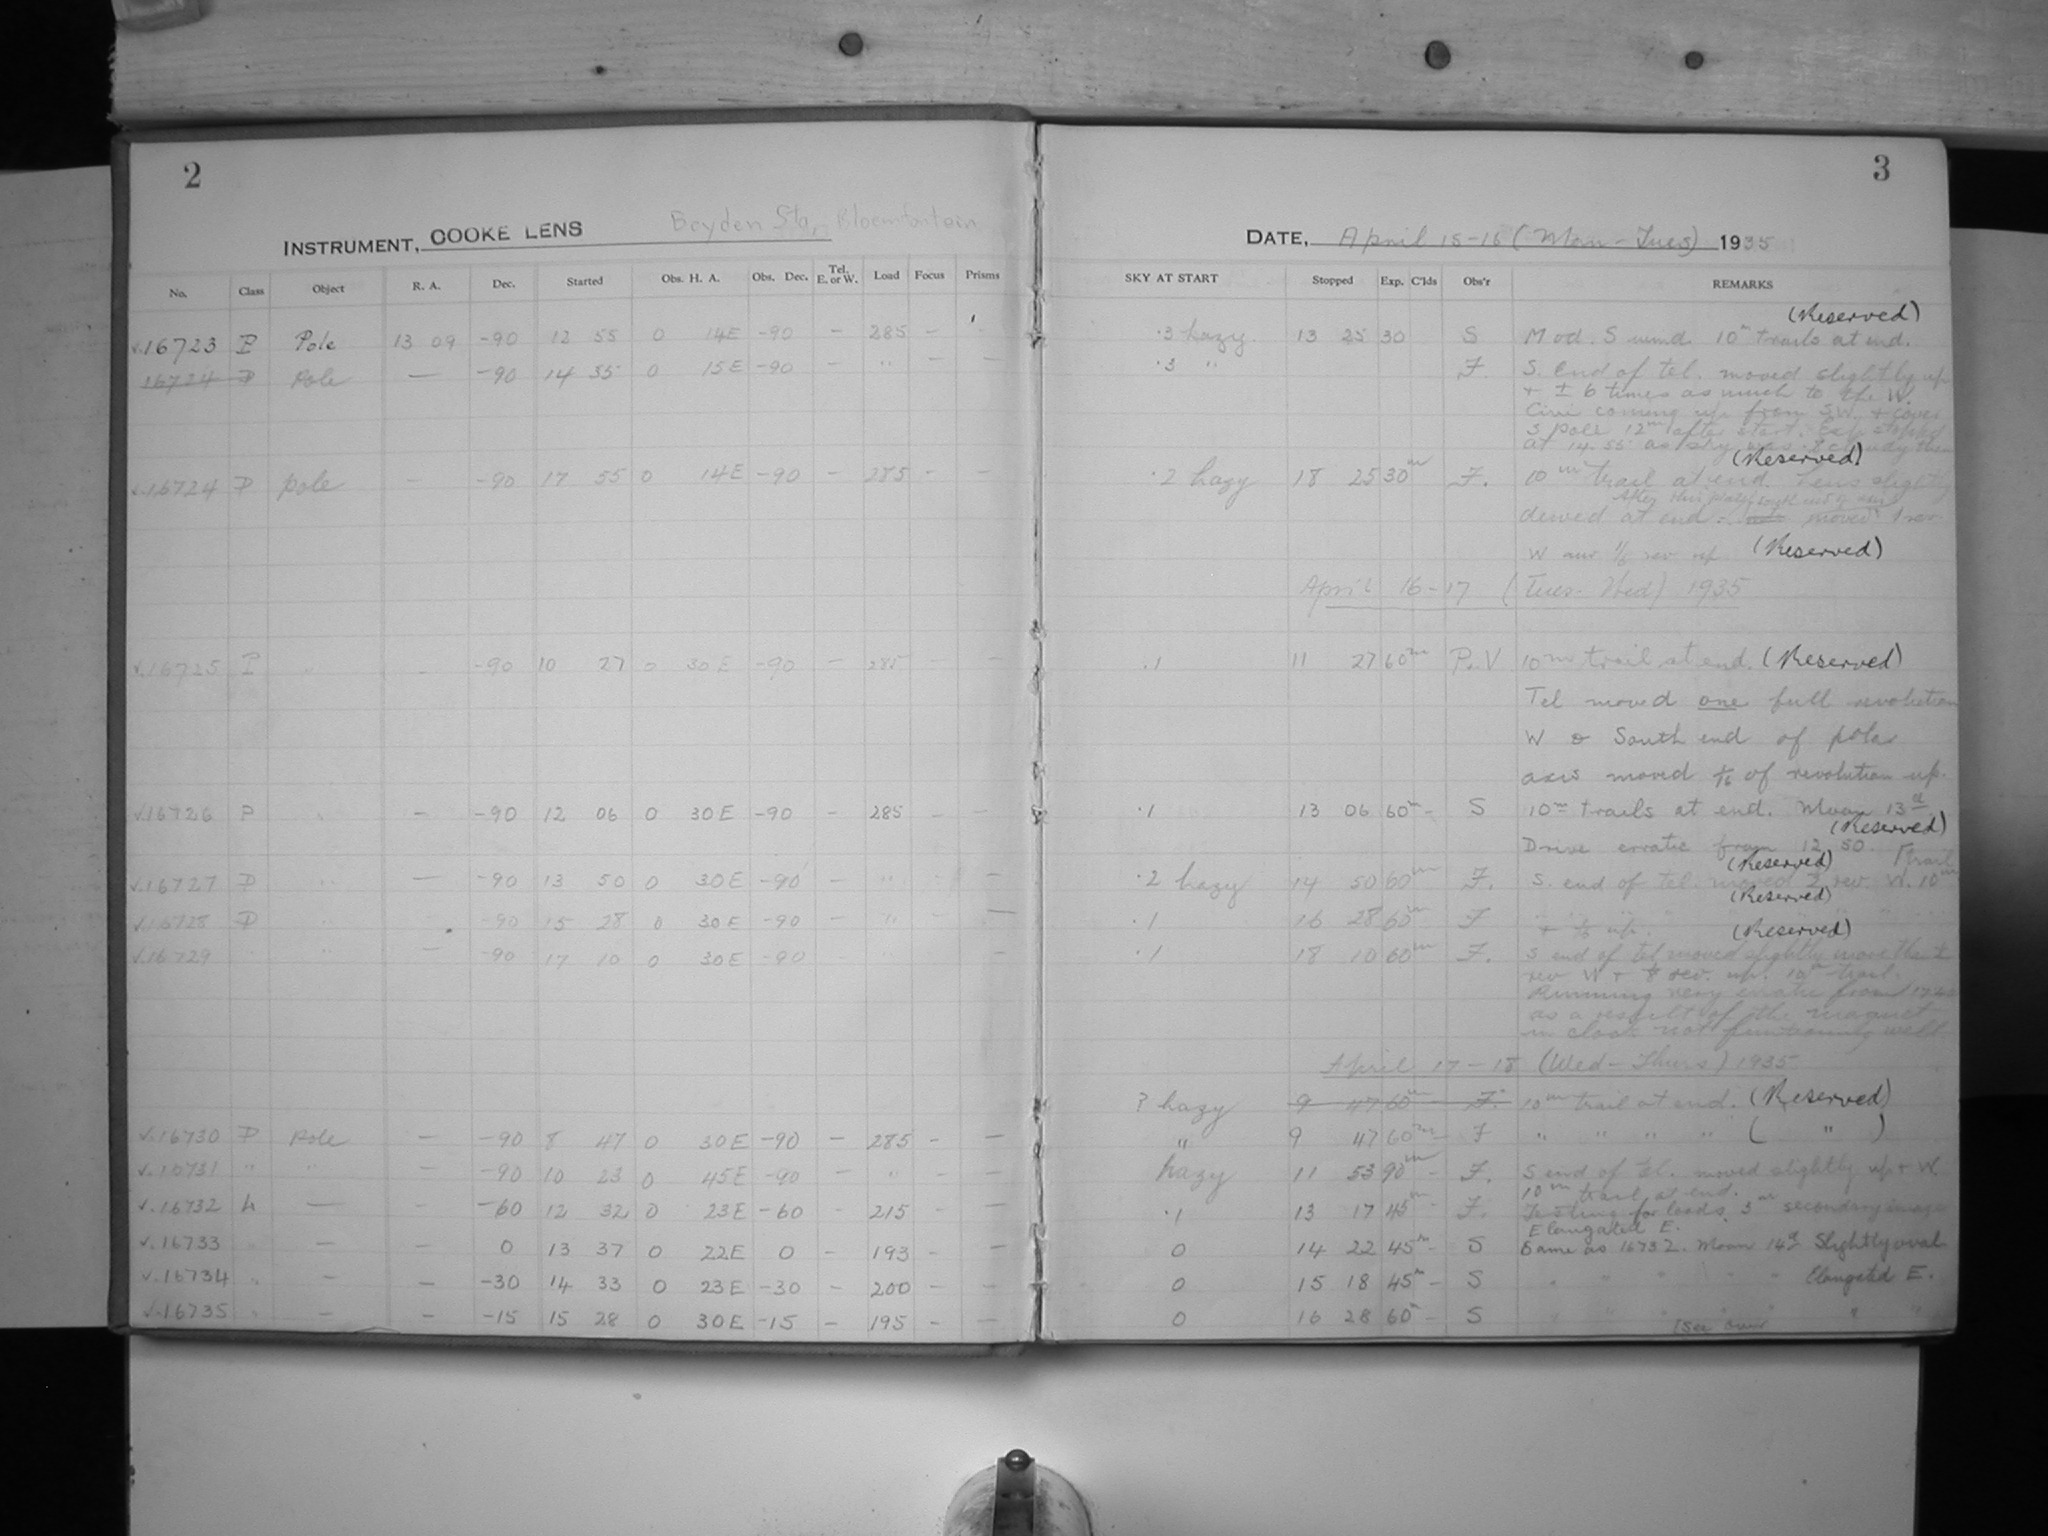 2
INSTRUMENT, COOKE LENS Boyden Sta, Bloemfontein
No. Class Object R. A. Dec. Started Obs. H. A. Obs. Dec. Tel. E. or W. Load Focus Prisms
√.16723 P Pole 13 09 -90 12 55 0 14E -90 - 285 - -
16724 P Pole — -90 14 35 0 15E -90 - " - -
√.16724 P pole - -90 17 55 0 14E -90 - 285 - -
√.16725 P " - -90 10 27 0 30E -90 - 285 - -
√.16726 P " - -90 12 06 0 30E -90 - 285 - -
√.16727 P " — -90 13 50 0 30E -90 - " - -
√.16728 P " -90 15 28 0 30E -90 - " - —
√.16729 " " — -90 17 10 0 30E -90 - " - -
√.16730 P Pole — -90 8 47 0 30E -90 - 285 - —
√.16731 " " — -90 10 23 0 45E -90 — " - -
√.16732 L — — -60 12 32 0 23E -60 - 215 - -
√.16733 — - 0 13 37 0 22E 0 - 193 - -
√.16734 " — - -30 14 33 0 23E -30 - 200 - -
√.16735 " — - -15 15 28 0 30E -15 - 195 - -
3
DATE, April 15-16 (Mon-Tues) 1935
SKY AT START Stopped Exp. C'lds Obs'r REMARKS
(Reserved)
.3 hazy. 13 25 30 S Mod. S wind. 10m trails at end.
.3 " F. S. end of tel. moved slightly up
+ ± 6 times as much to the W.
Cirri coming up from SW. + cover
S pole 12m after start. Exp stopped
at 14.55 as sky was cloudy then
(Reserved)
.2 hazy 18 25 30m F. 10m trail at end. Lens slightly
After this plate south end of axis
dewed at end - moved 1 rev.
W and 1/6 rev up (Reserved)
April 16-17 (Tues-Wed) 1935
.1 11 27 60m P.V 10m trail at end. (Reserved)
Tel moved one full revolution
W & South end of polar
axis moved 1/6 of revolution up.
.1 13 06 60m - S 10m trails at end. Moon 13d
(Reserved)
Drive erratic from 12 50.
(Reserved) [trail
.2 hazy 14 50 60m F. S. end of tel. moved rev. W. 10m
(Reserved)
.1 16 28 60m F " " " "
+ 1/6 up. (Reserved)
.1 18 10 60m F. S end of tel moved slightly more than
rev W + rev. up. 10m trail.
Running very erratic from
as a result of the magnet
in clock not functioning well
April 17-18 (Wed-Thurs) 1935
? hazy 9 47 60m F. 10m trail at end. (Reserved)
" 9 47 60m F " " " " ( " )
hazy 11 53 90m - F. S end of tel. moved slightly up + W.
10m trail at end.
.1 13 17 45m - F. Testing for loads. 3m secondary image
Elongated E.
0 14 22 45m - S Same as 16732. Moon 14d Slightly oval
0 15 18 45m - S " " " " " Elongated E.
0 16 28 60m - S " " " " " " "
(See over